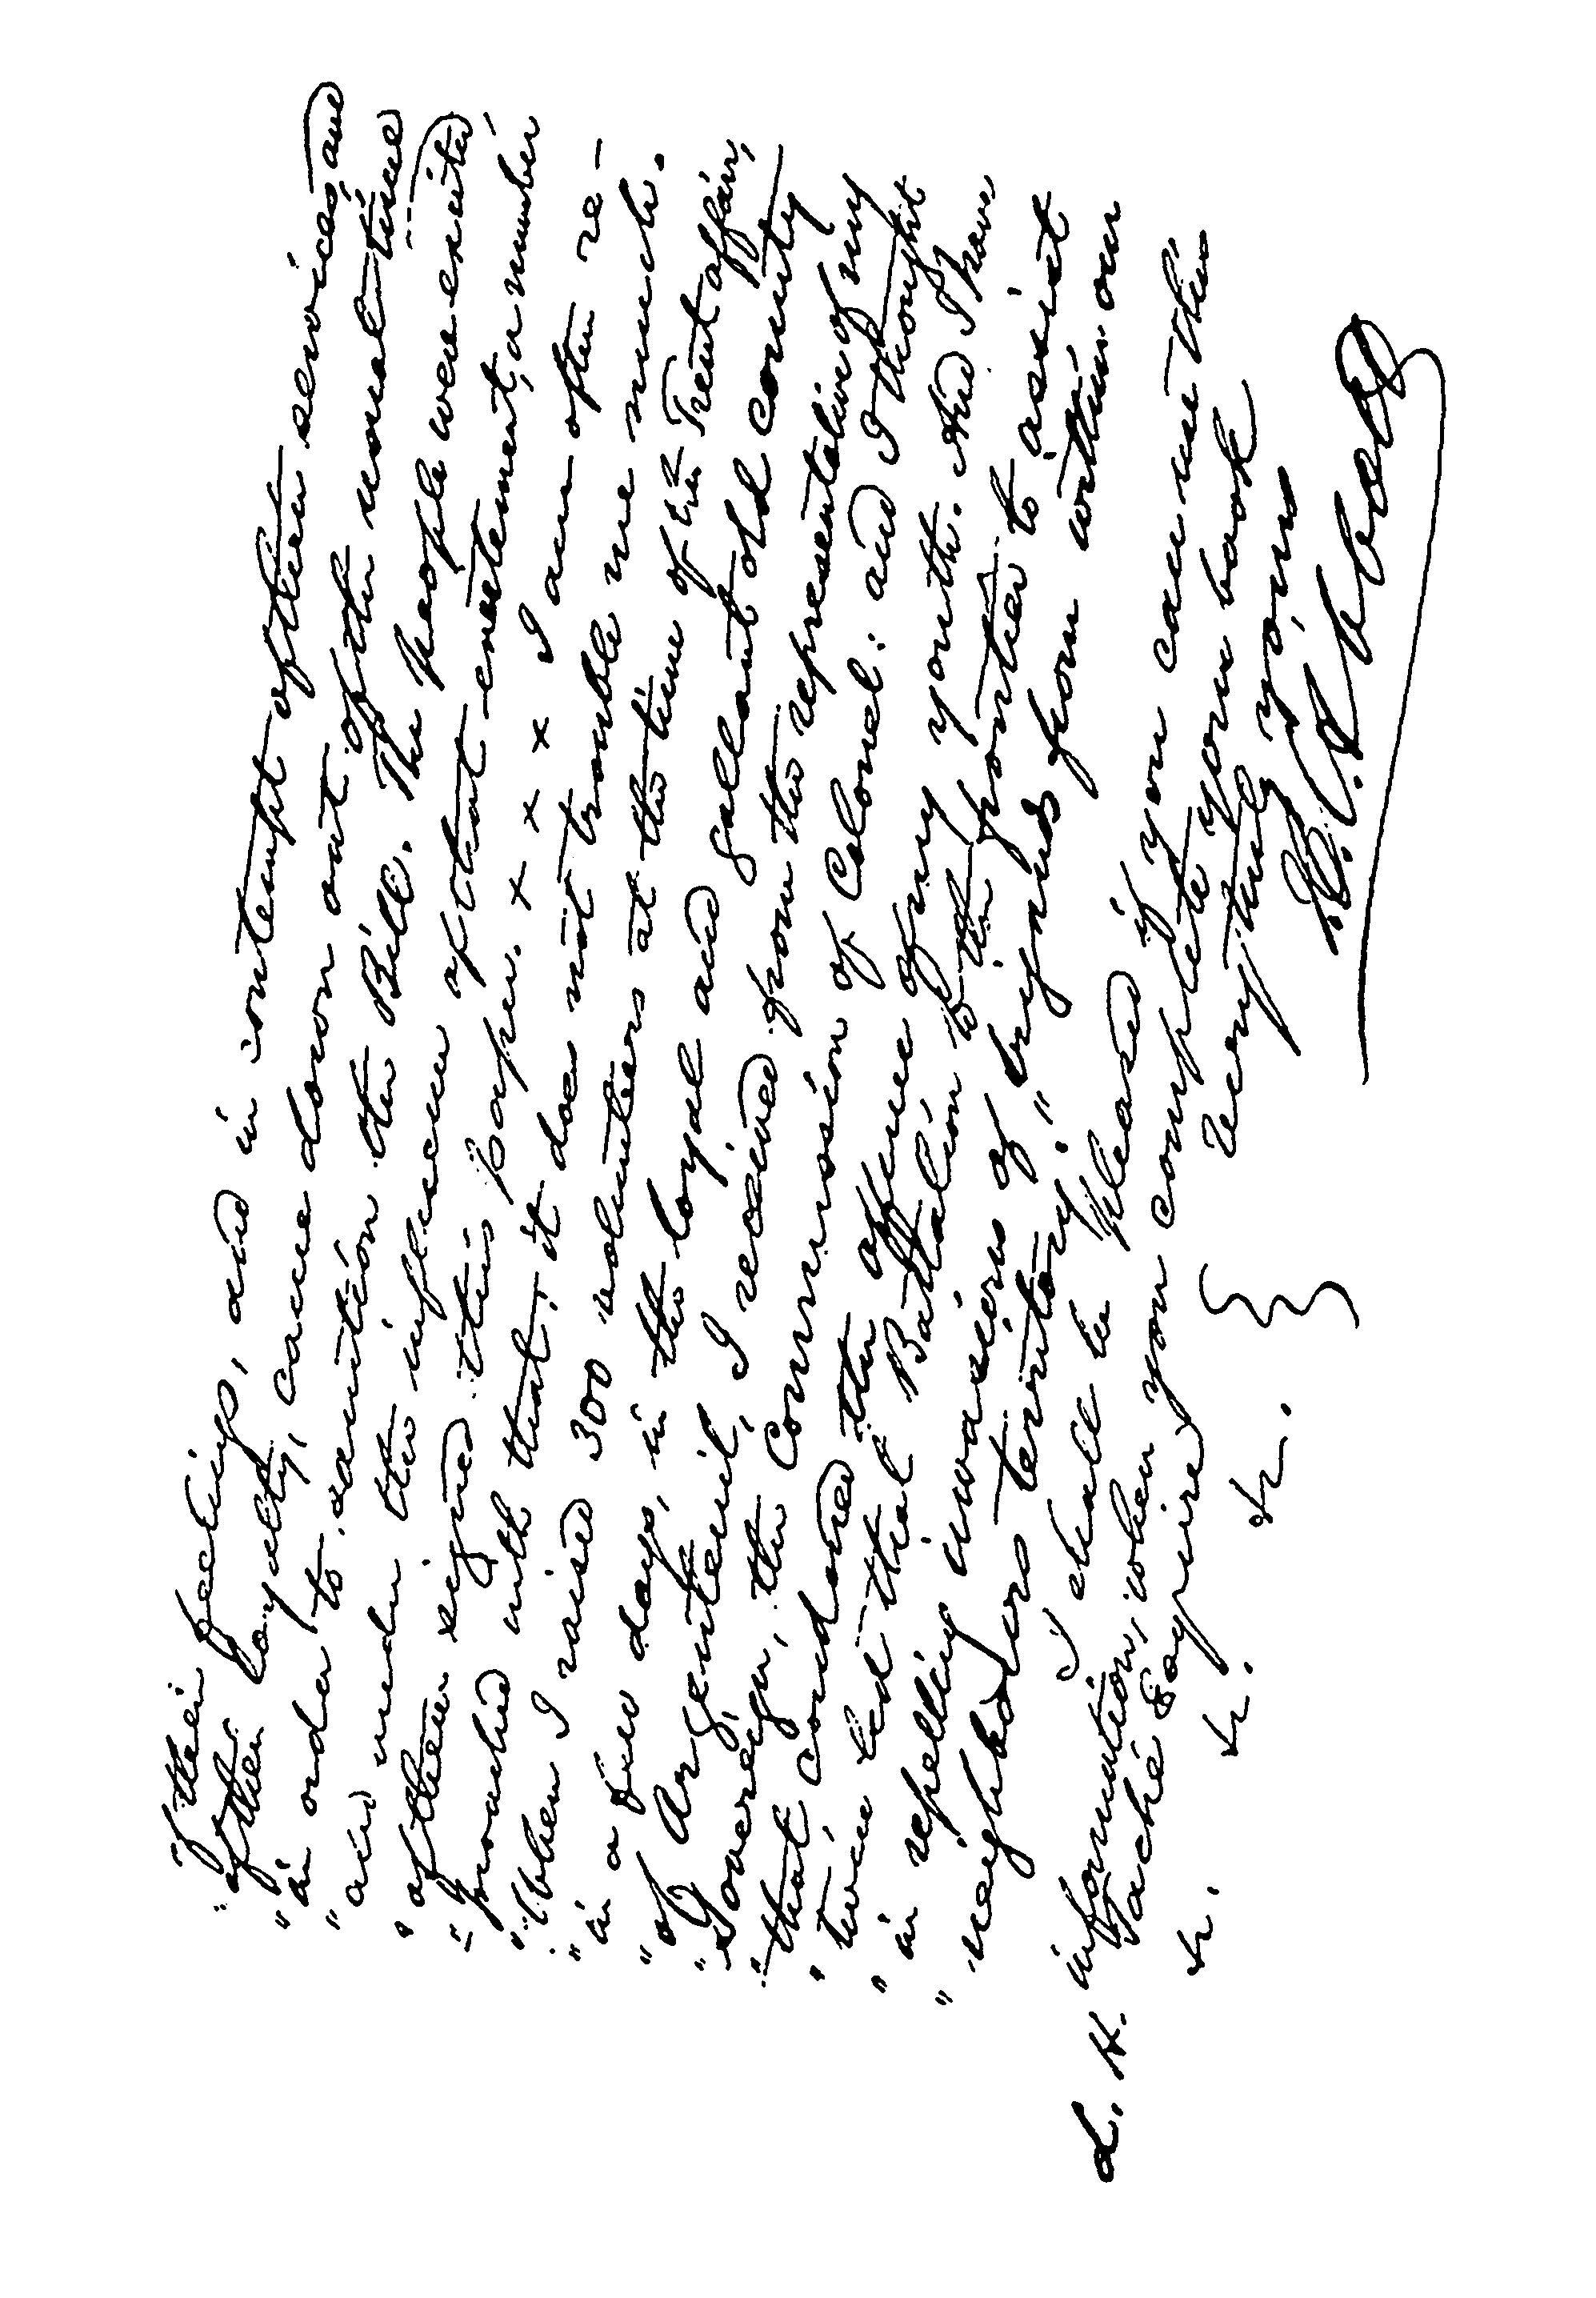 "of their feelings, and in contempt of their services and
"of their loyalty, came down out of the usual time
"in order to sanction the Bill. The people were excited
"and under the influence of that excitement, a number
"of them signed this paper. x x x x I am often re-
"proached with that; it does not trouble me much.
"When I raised 300 volunteers at the time of the Trent affair,
"in a few days, in the loyal and gallant old county
"of Argenteuil, I received from the representative of my
"Sovereign, the Commission of Colonel: and I thought
"that condoned the offence of my youth. And I have
"twice led that Battalion to the frontier to assist
"in repelling invasions of "brigands from within our
"neighbors territory."
I shall be pleased if you can use this
information, when you complete your book
L. H. Taché Esquire } Very truly yours
&c. &c. &c. J.J.C. Abbott